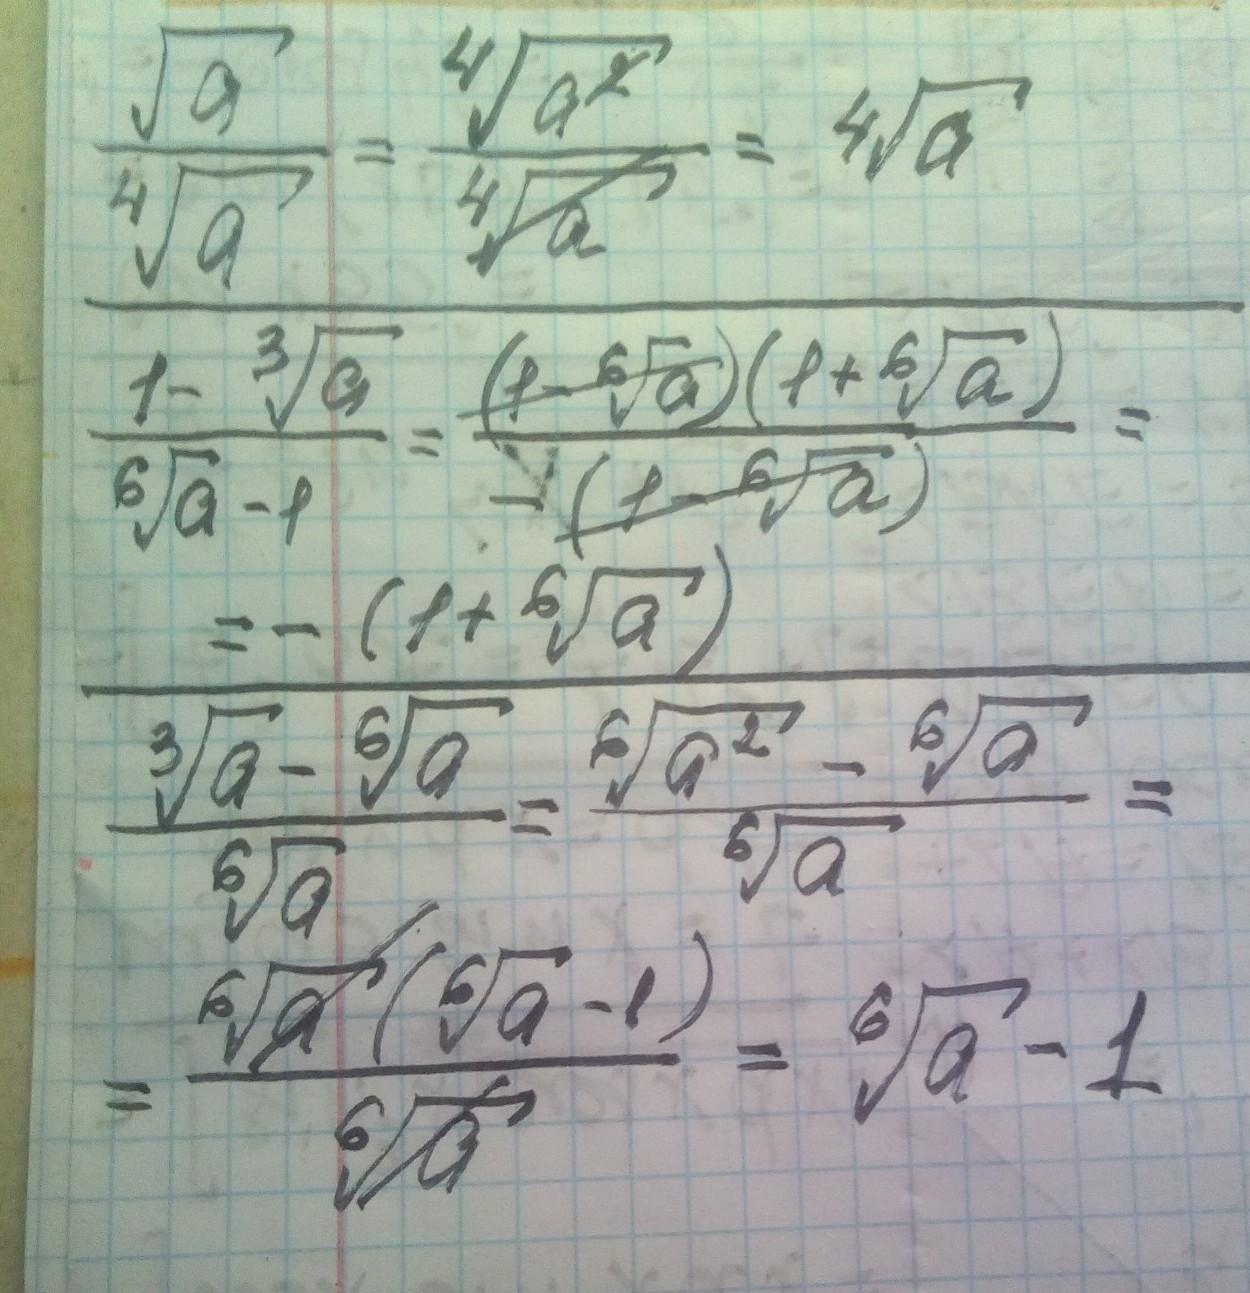 √a / ⁴√a = ⁴√a² / ⁴√a = ⁴√a
(1 - ³√a) / (⁶√a - 1) = (1 - ⁶√a)(1 + ⁶√a) / -(1 - ⁶√a) =
= - (1 + ⁶√a)
(³√a - ⁶√a) / ⁶√a = (⁶√a² - ⁶√a) / ⁶√a =
= ⁶√a (⁶√a - 1) / ⁶√a = ⁶√a - 1